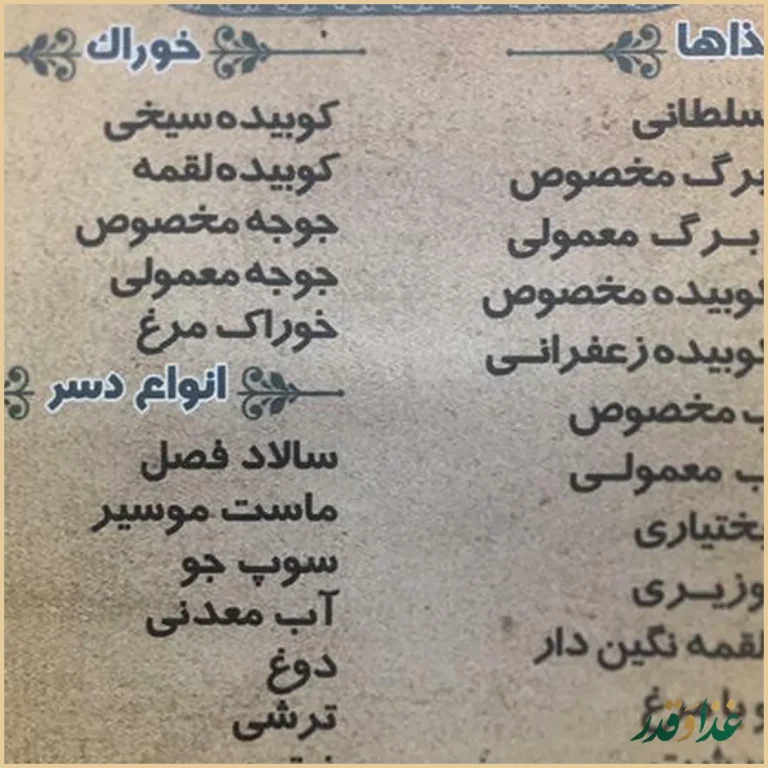 سلطانی
برگ مخصوص
بـرگ معمولی
کوبیده مخصوص
کوبیده زعفرانـی
مخصوص
معمولـی
بختیاری
وزیـری
لقمه نگین دار
خوراك
کوبیده سیخی
کوبیده لقمه
جوجه مخصوص
جوجه معمولی
خوراک مرغ
انواع دسر
سالاد فصل
ماست موسیر
سوپ جو
آب معدنی
دوغ
ترشی
غذا و قدر